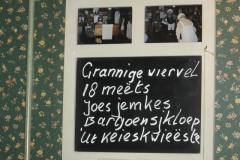 Grannige viervel
18 meèts
Joes jemkes
Bartjoensjkloep
'Ut Keieskwieëste